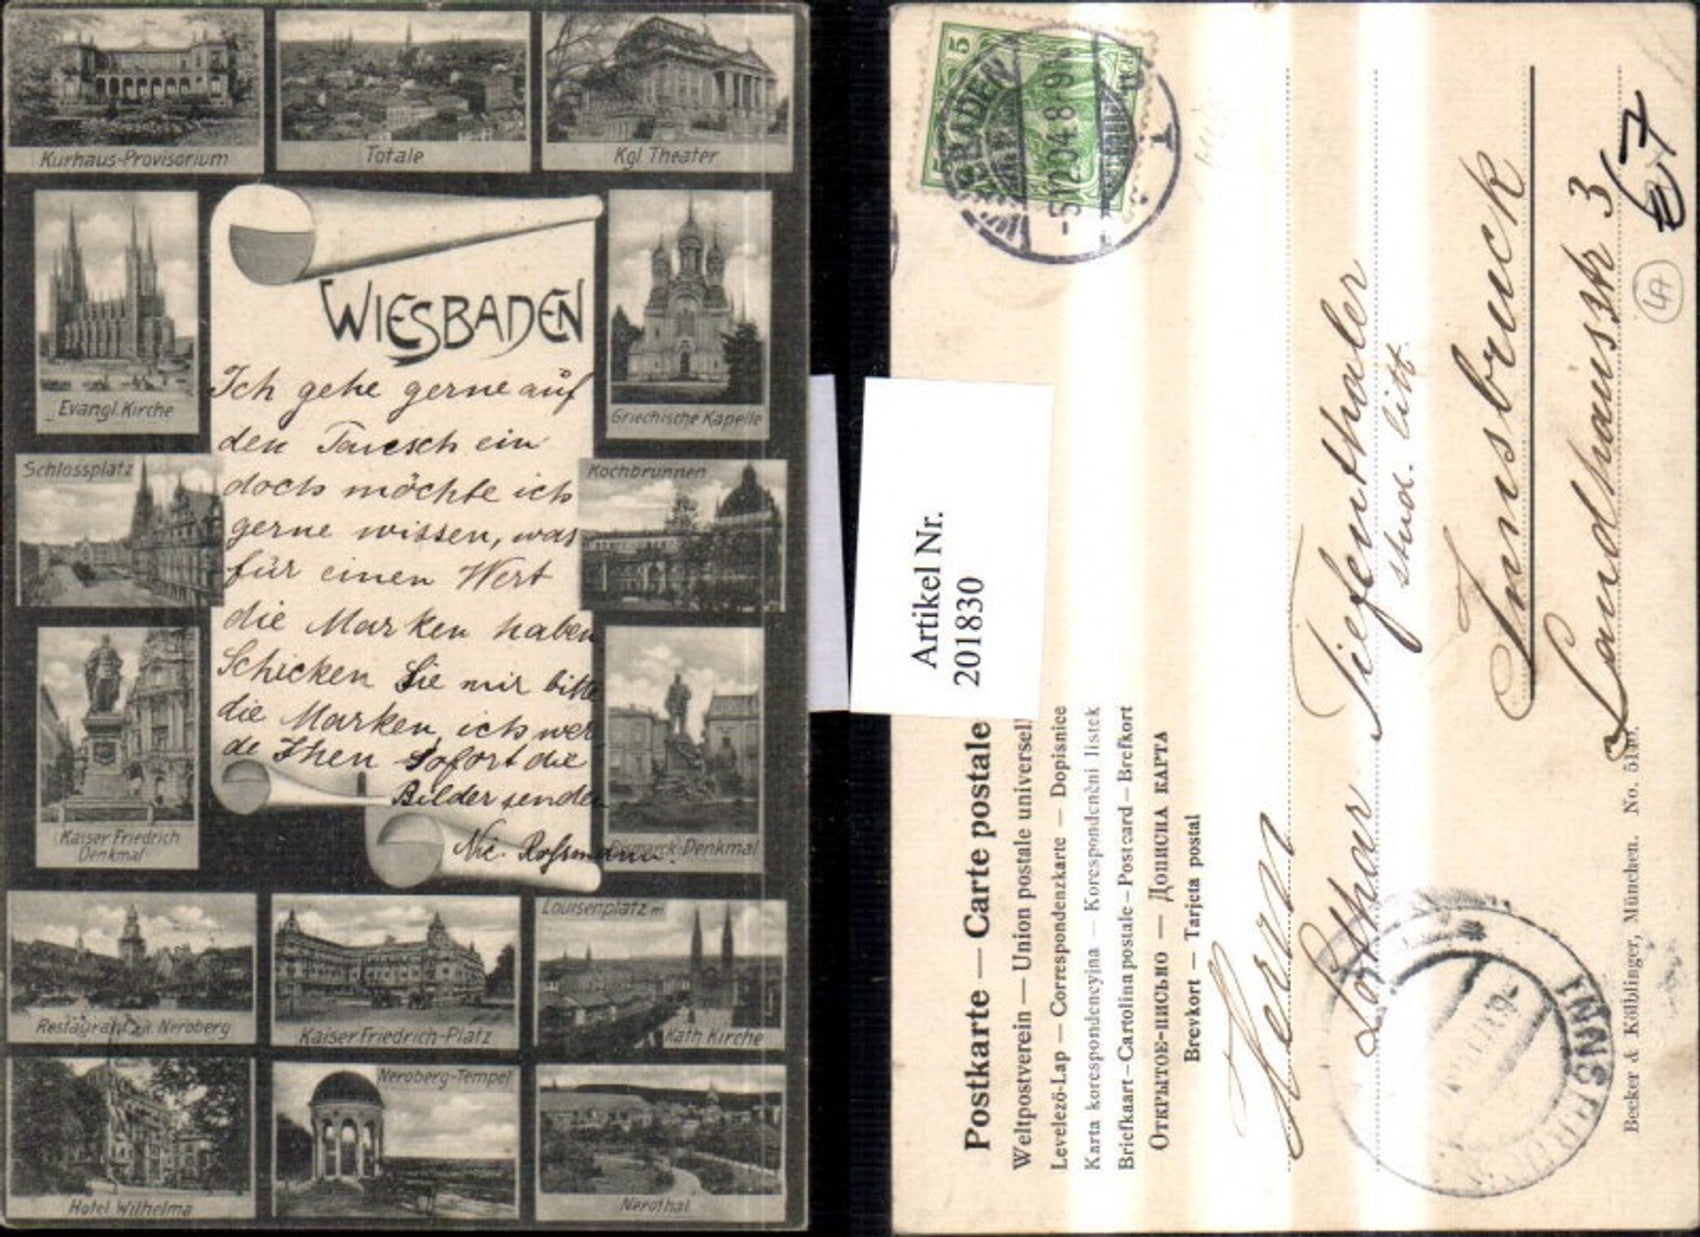 Kurhaus-Provisorium
Totale
Kgl. Theater
Evangl. Kirche
WIESBADEN
Griechische Kapelle
Ich gehe gerne auf
den Tausch ein
doch möchte ich
gerne wissen, was
für einen Wert
die Marken haben
Schicken Sie mir bitte
die Marken, ich wer-
de Ihen sofort die
Bilder senden
Nic. Rossmann.
Schlossplatz
Kochbrunnen
Kaiser Friedrich
Denkmal
Bismarck-Denkmal
Restaurant a. Neroberg
Kaiser Friedrich-Platz
Louisenplatz m.
Kath Kirche
Hotel Wilhelma
Neroberg-Tempel
Nerothal
5
5.12.04.8-9N
1
Artikel Nr.
201830
Postkarte — Carte postale
Weltpostverein — Union postale universell
Levelező-Lap — Correspondenzkarte — Dopisnice
Karta korespondencyjna — Korespondenční listek
Briefkaart – Cartolina postale – Post card – Brefkort
Открытое-письмо — Дописна карта
Brevkort — Tarjeta postal
Herrn
Lothar Tiefenthaler
stud. litt.
Innsbruck
Landhausstr 3
67
INNSBRUCK
Becker & Kölblinger, München. No. 5140.